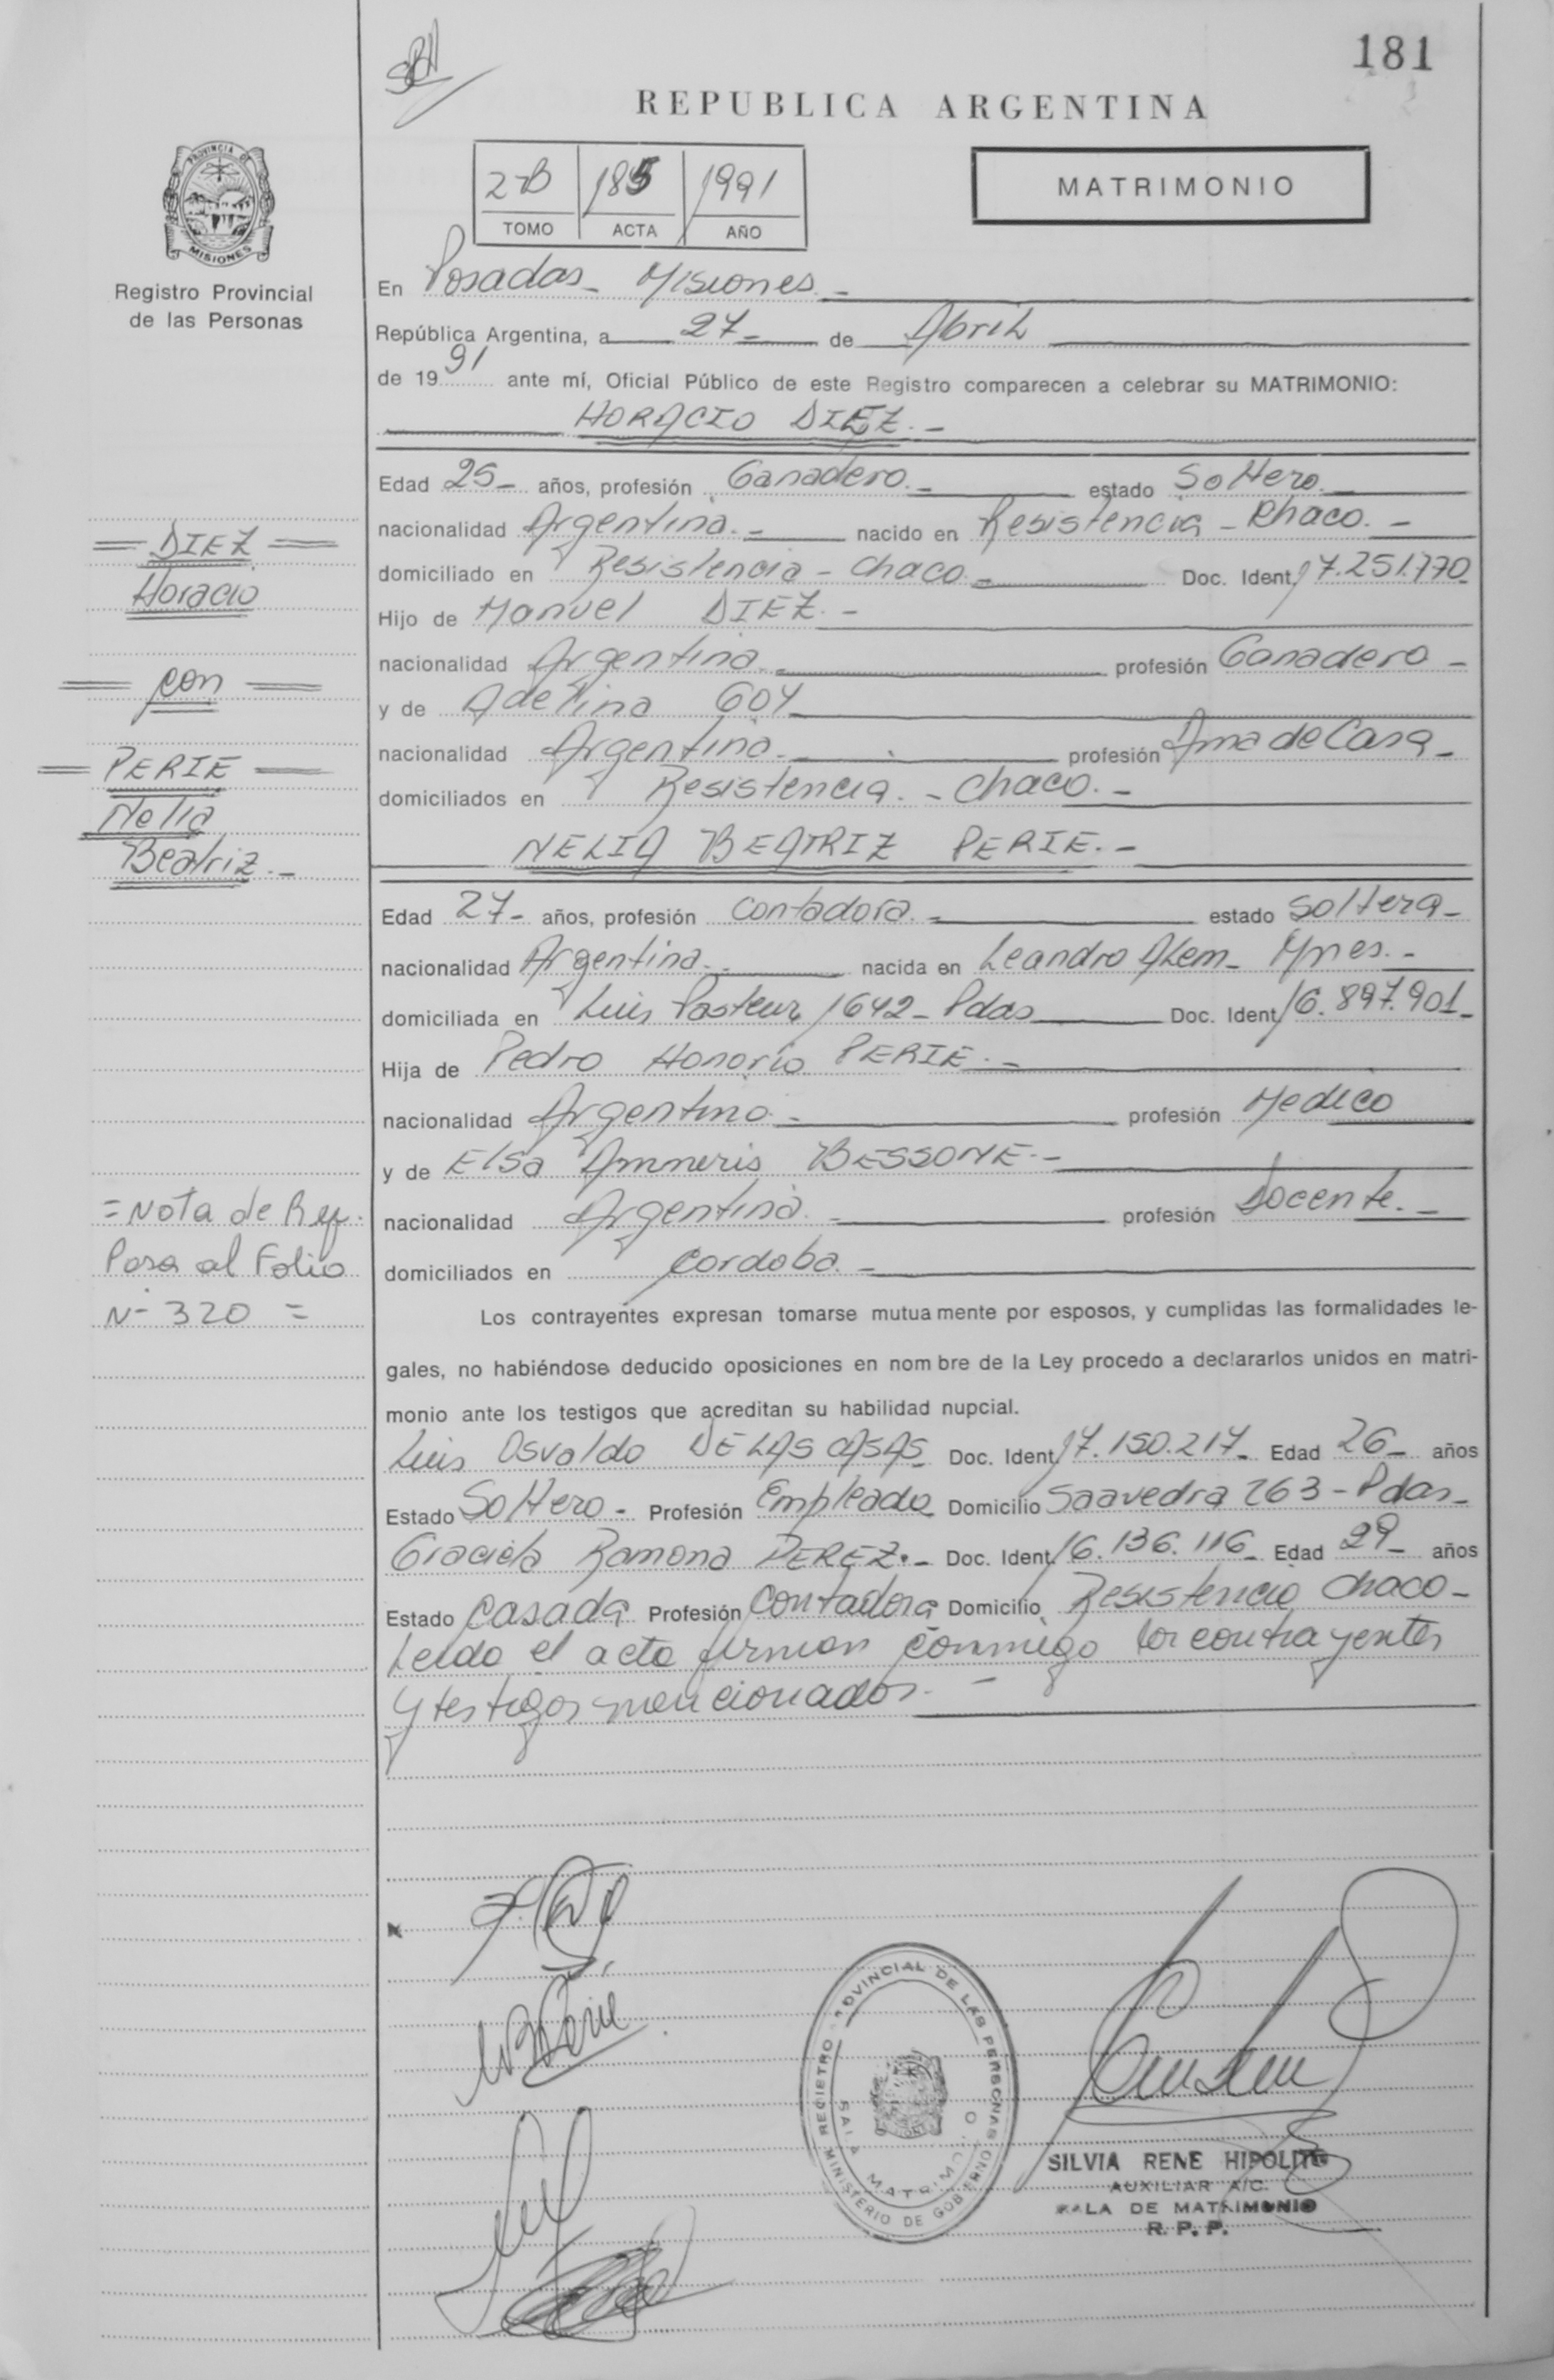 181
REPUBLICA ARGENTINA
PROVINCIA DE
MISIONES
Registro Provincial
de las Personas
2-B 185 1991
TOMO ACTA AÑO
MATRIMONIO
En Posadas - Misiones. -
República Argentina, a 27 - de Abril
de 1991 ante mí, Oficial Público de este Registro comparecen a celebrar su MATRIMONIO:
HORACIO DIEZ. -
Edad 25 - años, profesión Ganadero. - estado Soltero. -
nacionalidad Argentina. - nacido en Resistencia - Chaco. -
domiciliado en Resistencia - Chaco - Doc. Ident. 17.251.770
Hijo de Manuel DIEZ. -
nacionalidad Argentina - profesión Ganadero -
y de Adelina GOY
nacionalidad Argentina. - profesión Ama de Casa -
domiciliados en Resistencia. - Chaco. -
= DIEZ =
Horacio
= con =
= PERIE =
Nelia
Beatriz. -
NELIA BEATRIZ PERIE. -
Edad 27 - años, profesión Contadora. - estado Soltera -
nacionalidad Argentina. - nacida en Leandro Alem - Mnes. -
domiciliada en Luis Pasteur 1642 - Pdas Doc. Ident. 16.897.901 -
Hija de Pedro Honorio PERIE. -
nacionalidad Argentino. - profesión Medico
y de Elsa Amneris BESSONE. -
nacionalidad Argentina. - profesión Docente. -
domiciliados en Cordoba. -
= Nota de Ref.
Pasa al Folio
N- 320 =
Los contrayentes expresan tomarse mutuamente por esposos, y cumplidas las formalidades le-
gales, no habiéndose deducido oposiciones en nombre de la Ley procedo a declararlos unidos en matri-
monio ante los testigos que acreditan su habilidad nupcial.
Luis Osvaldo DE LAS CASAS Doc. Ident. 17.150.217 - Edad 26 - años
Estado Soltero - Profesión Empleado Domicilio Saavedra 263 - Pdas -
Graciela Ramona PEREZ. - Doc. Ident. 16.136.116 - Edad 29 - años
Estado Casada Profesión Contadora Domicilio Resistencia Chaco -
Leido el acta firman conmigo los contrayentes
y testigos mencionados. -
REGISTRO PROVINCIAL DE LAS PERSONAS
SALA MATRIMONIO
MINISTERIO DE GOBIERNO
SILVIA RENE HIPOLITO
AUXILIAR A/C.
SALA DE MATRIMONIO
R. P. P.